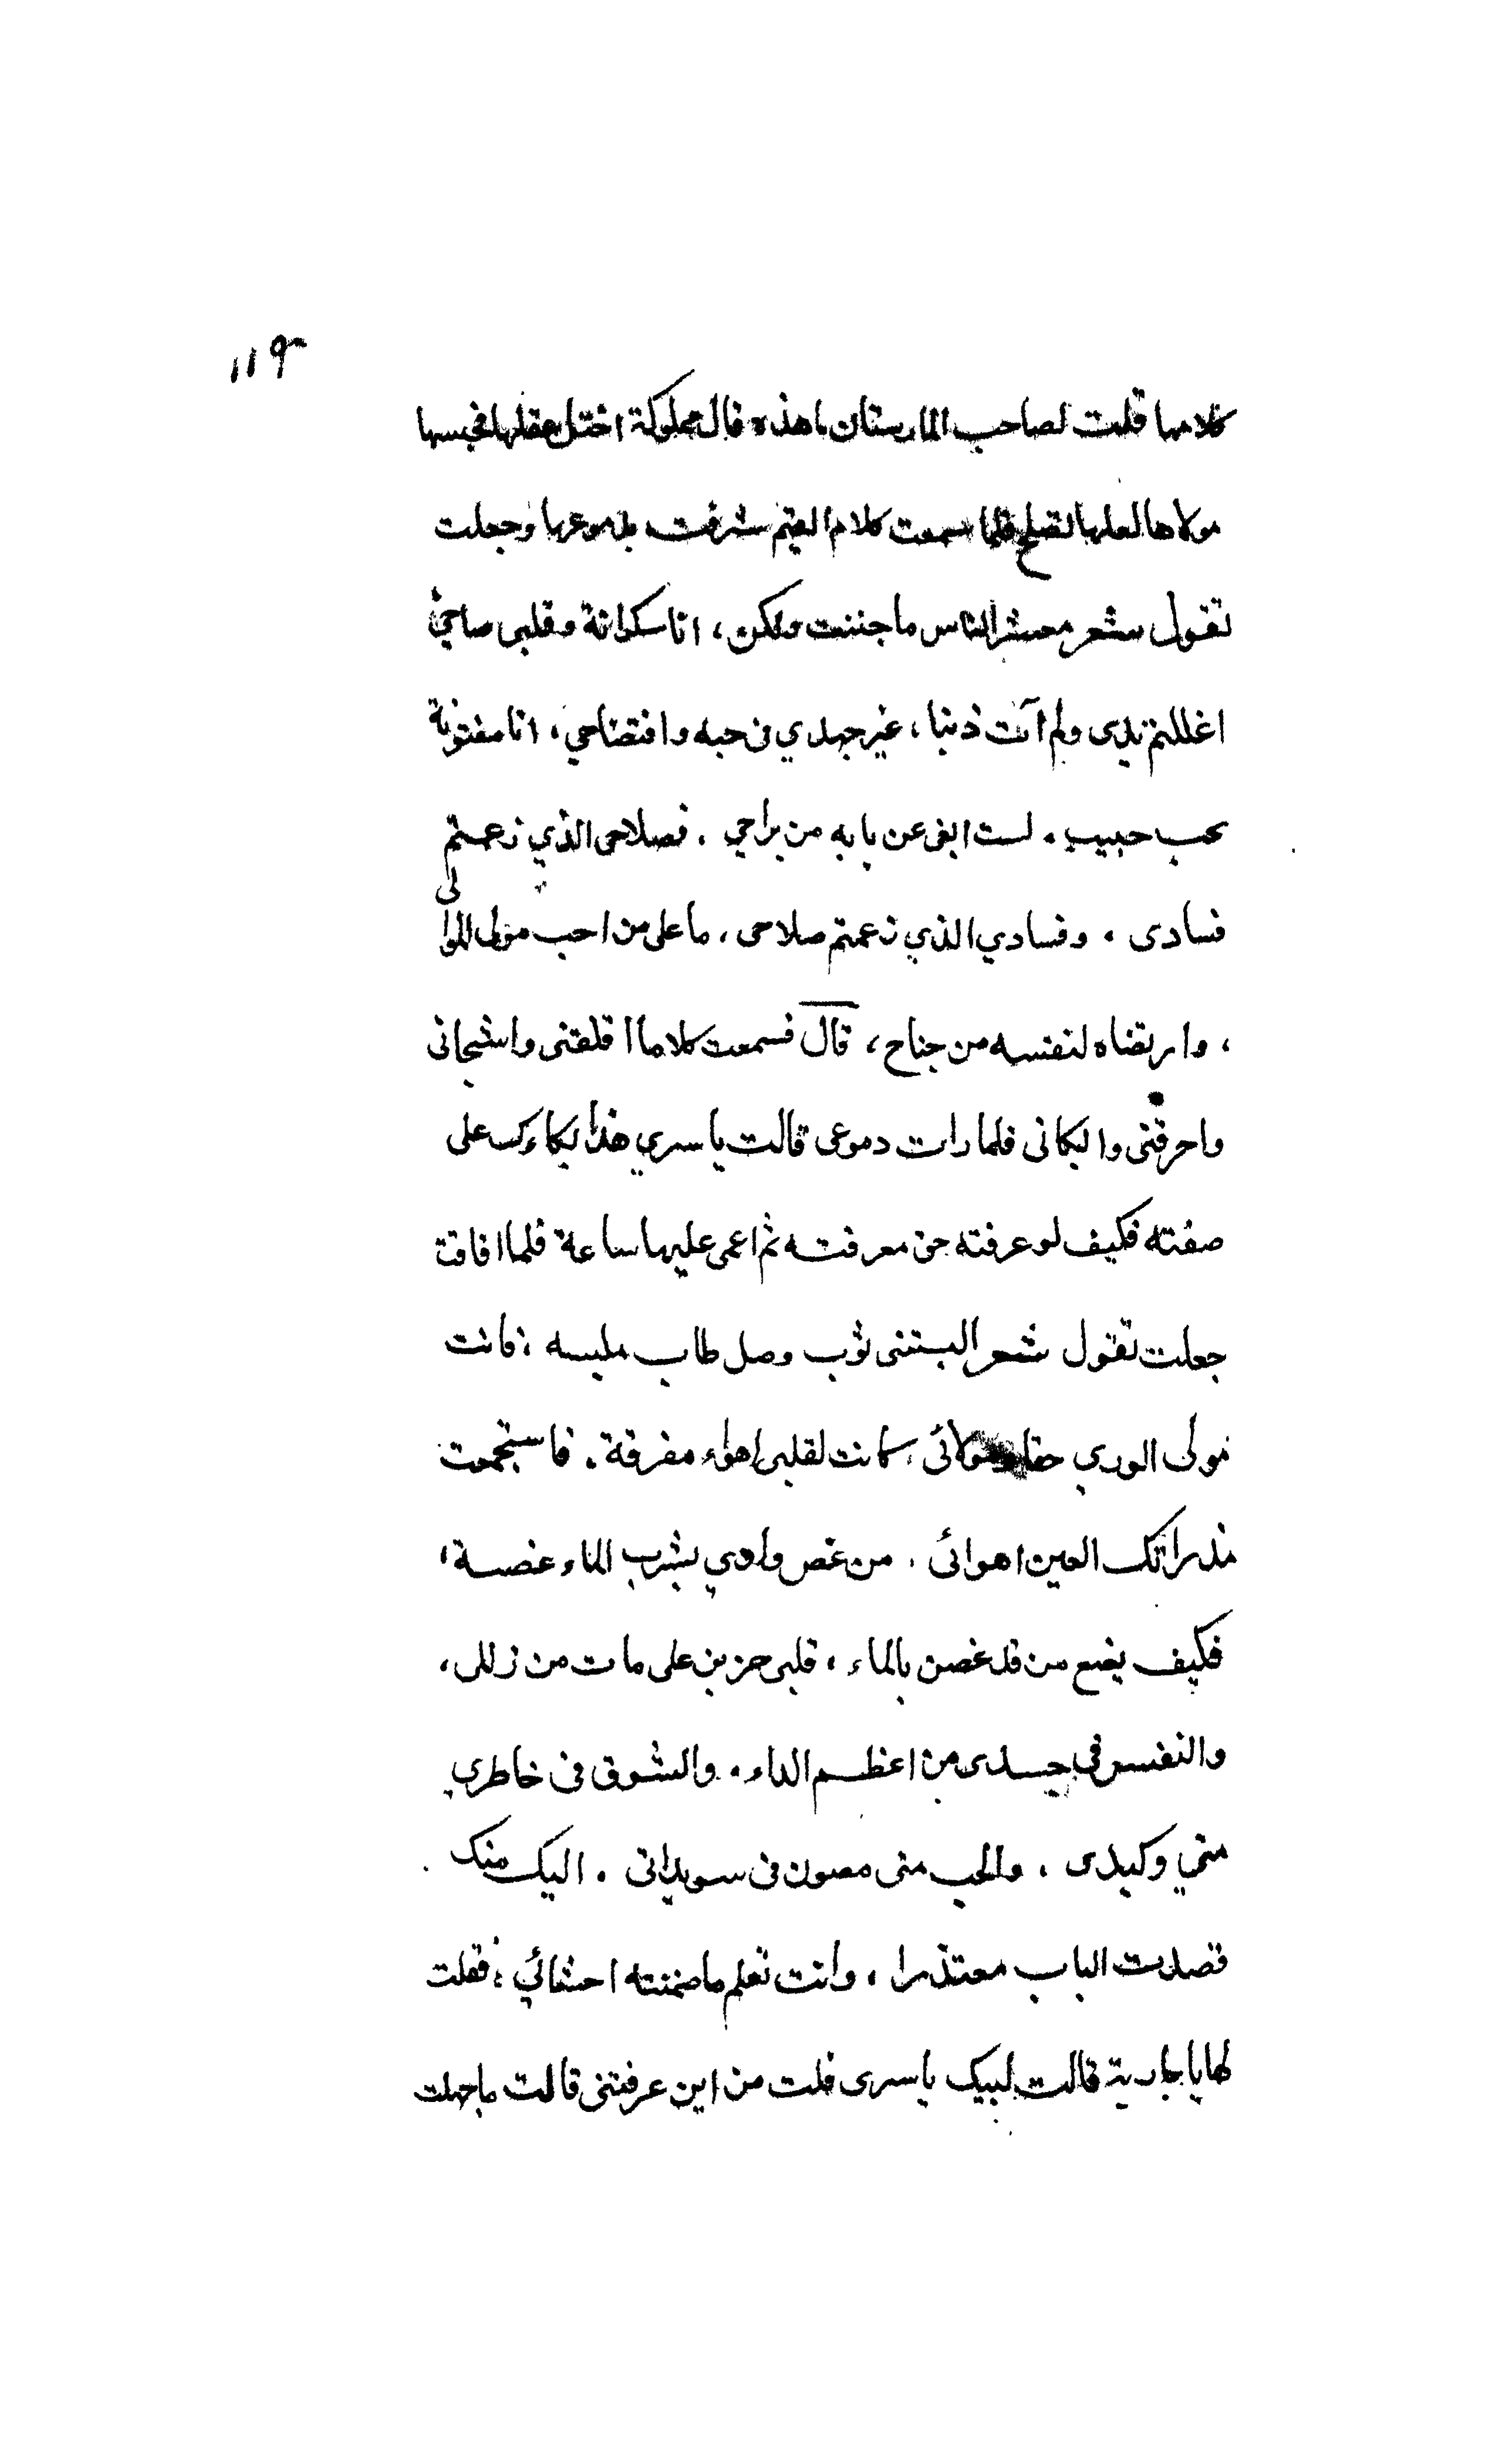 ١١٩
كلامها قلت لصاحب المارستان ما هذه قال مملوكة اختل عقلها فحبسها
مولاها لعلها تصلح فلما سمعت كلام القيم شرقت بدموعها وجعلت
تقول شعر معشر الناس ما جننت ولكن ، انا سكرانة وقلبي صاحي
اغللتم يدى ولم آت ذنبا ، غير جهدي في حبه وافتضاحي ، انا مفتونة
بحب حبيب . لست ابغى عن بابه من براحي . فصلاحى الذي زعمتم
فسادى . وفسادي الذي زعمتم صلاحى ، ما على من احب مولى الموالى
، وارتضاه لنفسه من جناح ، قال فسمعت كلاما اقلقنى واشجانى
واحرقنى وابكانى فلما رات دموعى قالت يا سري هذا بكاءك على
صفته فكيف لو عرفته حق معرفته ثم اغمى عليها ساعة فلما افاقت
جعلت تقول شعر البستنى ثوب وصل طاب ملبسه ؛ فانت
مولى الوري حقا ومولائى ، كانت لقلبى اهواء مفرقة . فاستجمعت
مذ راتك العين اهوائى . من غص داوي بشرب الماء غصته ،
فكيف يصنع من قد غص بالماء ، قلبى حزين على ما فات من زللى ،
والنفس في جسدى من اعظم الداء . والشوق فى خاطري
منى وكبدى ، والحب منى مصون فى سويدائى . اليك منك
قصدت الباب معتذرا ، وانت تعلم ما ضمنته احشائي ؛ فقلت
لها يا جارية قالت لبيك يا سرى قلت من اين عرفتنى قالت ما جهلت